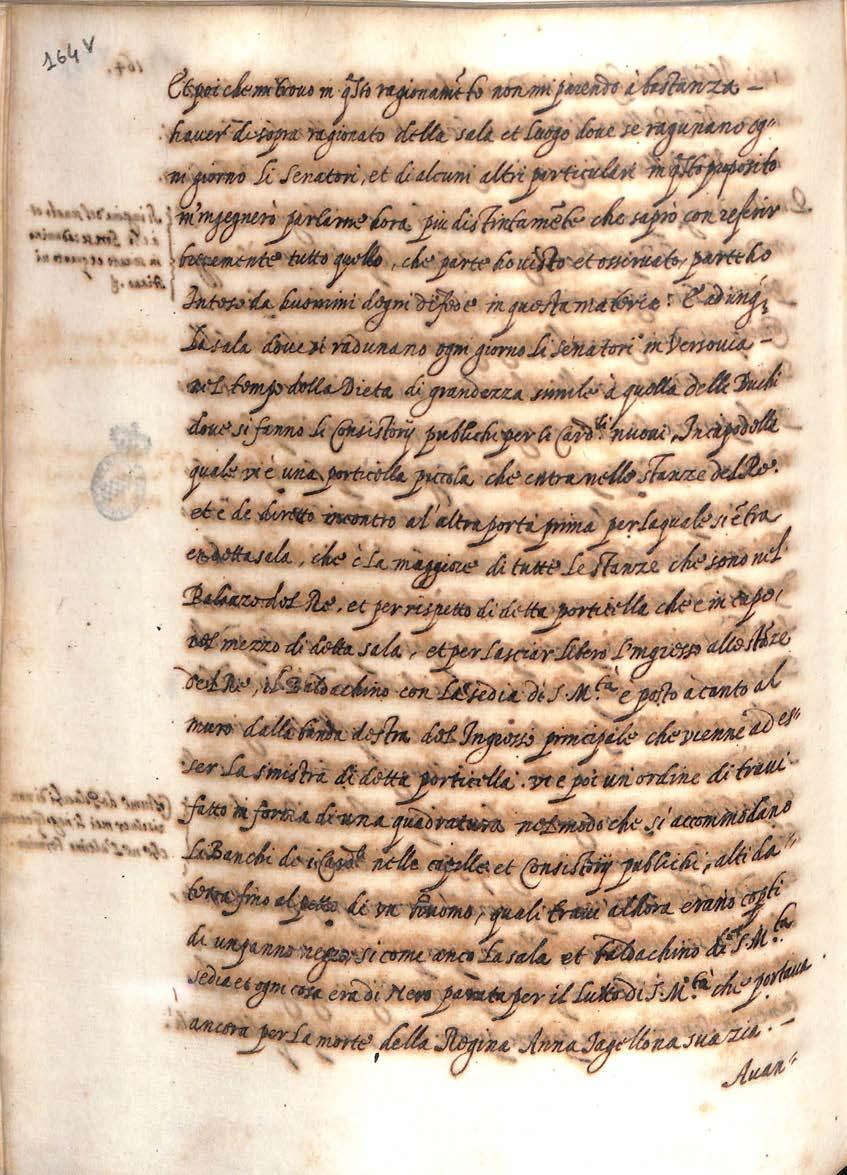 164 v
Et poi che mi trovo in q̃sto ragionamẽto non mi parendo à bastanza –
haver di sopra ragionato della sala et luogo dove se ragunano og=
ni giorno li Senatori, et di alcuni altri particulari in q̃sto proposito
m'ingegnerò parlarne hora più distintamẽte che saprò con referir
brevemente tutto quello, che parte ho visto et osservato, parte ho
Inteso da huomini degni di fede in questa materia. E adunq;
La sala dove si radunano ogni giorno li senatori in Versovia –
nel tempo della Dieta di grandezza simile à quella delle Duchi
dove si fanno li Consistorij publichi per li Card.li nuovi, In capo della
quale vi è una porticella piccola che entra nelle stanze del Re.
et è de diretto incontro al'altra porta prima per laquale si ẽtra
en detta sala, che è la maggiore di tutte le stanze che sono nel
Palazzo del Re, et per rispetto di detta porticella che è in capo,
nel mezzo di detta sala, et per lasciar libero l'ingresso alle stãze
del Re, il Baldachino con la sedia di S. M.tà è posto à canto al
muro dalla banda destra del Ingresso principale che vienne ad es=
ser la sinistra di detta porticella. vi è poi un'ordine di travi
fatto in forma di una quadratura nel modo che si accommodano
la Banchi de i Card.li nelle capelle et Consistorij publichi, alti da
terra fino al petto di un huomo, quali travi alhora erano copti
di un panno negro, si come anco la sala et baldachino di S. M.tà
sedia et ogni cosa era di Nero parata per il Lutto di S. M.tà che portava
ancora per la morte della Regina Anna Jagellona sua zia. –
Avan=